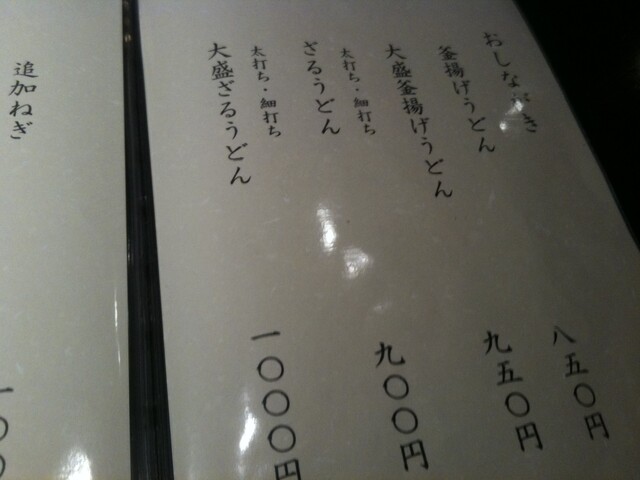 おしながき
釜揚げうどん
八五〇円
大盛釜揚げうどん
九五〇円
太打ち・細打ち
ざるうどん
九〇〇円
太打ち・細打ち
大盛ざるうどん
一〇〇〇円
追加ねぎ
一〇〇